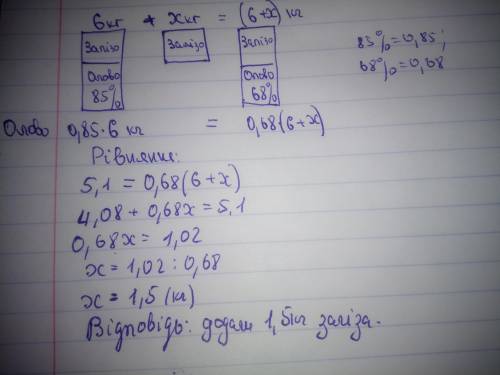 6кг + xкг = (6+x) кг
Залізо Залізо Залізо
85%=0,85;
Олово 85% Олово 68%
68%=0,68
Олово 0,85·6 кг = 0,68(6+x)
Рівняння:
5,1 = 0,68(6+x)
4,08 + 0,68x = 5,1
0,68x = 1,02
x = 1,02 : 0,68
x = 1,5 (кг)
Відповідь: додали 1,5кг заліза.